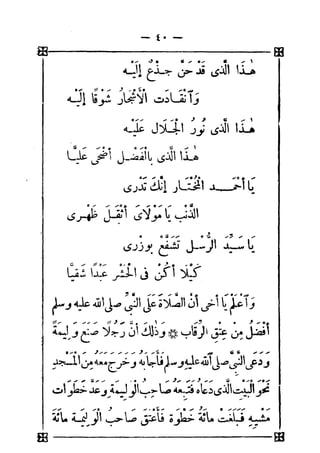 — ٤٠ —
هٰذَا الَّذِى قَدْ حَنَّ جِذْعٌ إِلَيْـه
وَآنْقَـادَتِ الْأَشْجَارُ شَوْقًا إِلَيْـه
هٰذَا الَّذِى نُورُ الْجَـلَالِ عَلَيْـه
هٰـذَا الَّذِى بِالْفَضْـلِ أَضْحَى عَلِيَّـا
يَا أَحْمَـــدَ الْمُخْتَـــارِ إِنَّكَ تَدْرِى
الذَّنْبُ يَا مَوْلَاىَ أَثْقَـلَ ظَهْـرِى
يَا سَيِّدَ الرُّسْـلِ تَشَفَّعْ بِوِزْرِى
كَيْلَا أَكُنْ فِى الْحَشْرِ عَبْدًا شَقِيَّا
وَآعْلَمْ يَا أَخِى أَنَّ الصَّلَاةَ عَلَى النَّبِىِّ صلى الله عليه وسلم
أَفْضَلُ مِنْ عِتْقِ الرِّقَابِ * وَذٰلِكَ أَنَّ رَجُلًا صَنَعَ وَلِيمَةً
وَدَعَى النَّبِىَّ صلى الله عليه وسلم فَأَجَابَهُ وَخَرَجَ مَعَهُ مِنَ الْمَسْجِدِ
نَحْوَ الْبَيْتِ الَّذِى دَعَاهُ فَتَبِعَهُ صَاحِبُ الْوَلِيمَةِ وَعَدَّ خَطَوَاتِ
مَشْيِهِ فَبَلَغَتْ مِائَةَ خَطْوَةٍ فَأَعْتَقَ صَاحِبُ الْوَلِيمَةِ مِائَةَ